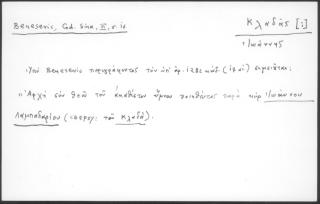 Benesevic, Cod. Sin. III, 1. σ. 12
Κλαδᾶς [:]
Ἰωάννης
Ὑπὸ Benesevic περιγράφοντος τὸν ὑπ' ἀρ. 1282 κώδ. (ις' αἰ) σημειοῦται:
"Ἀρχὴ σὺν θεῷ τοῦ ἀκαθίστου ὕμνου ποιηθέντος παρὰ κὺρ Ἰωάννου
Λαμπαδαρίου (τοῦ Κλαδᾶ).